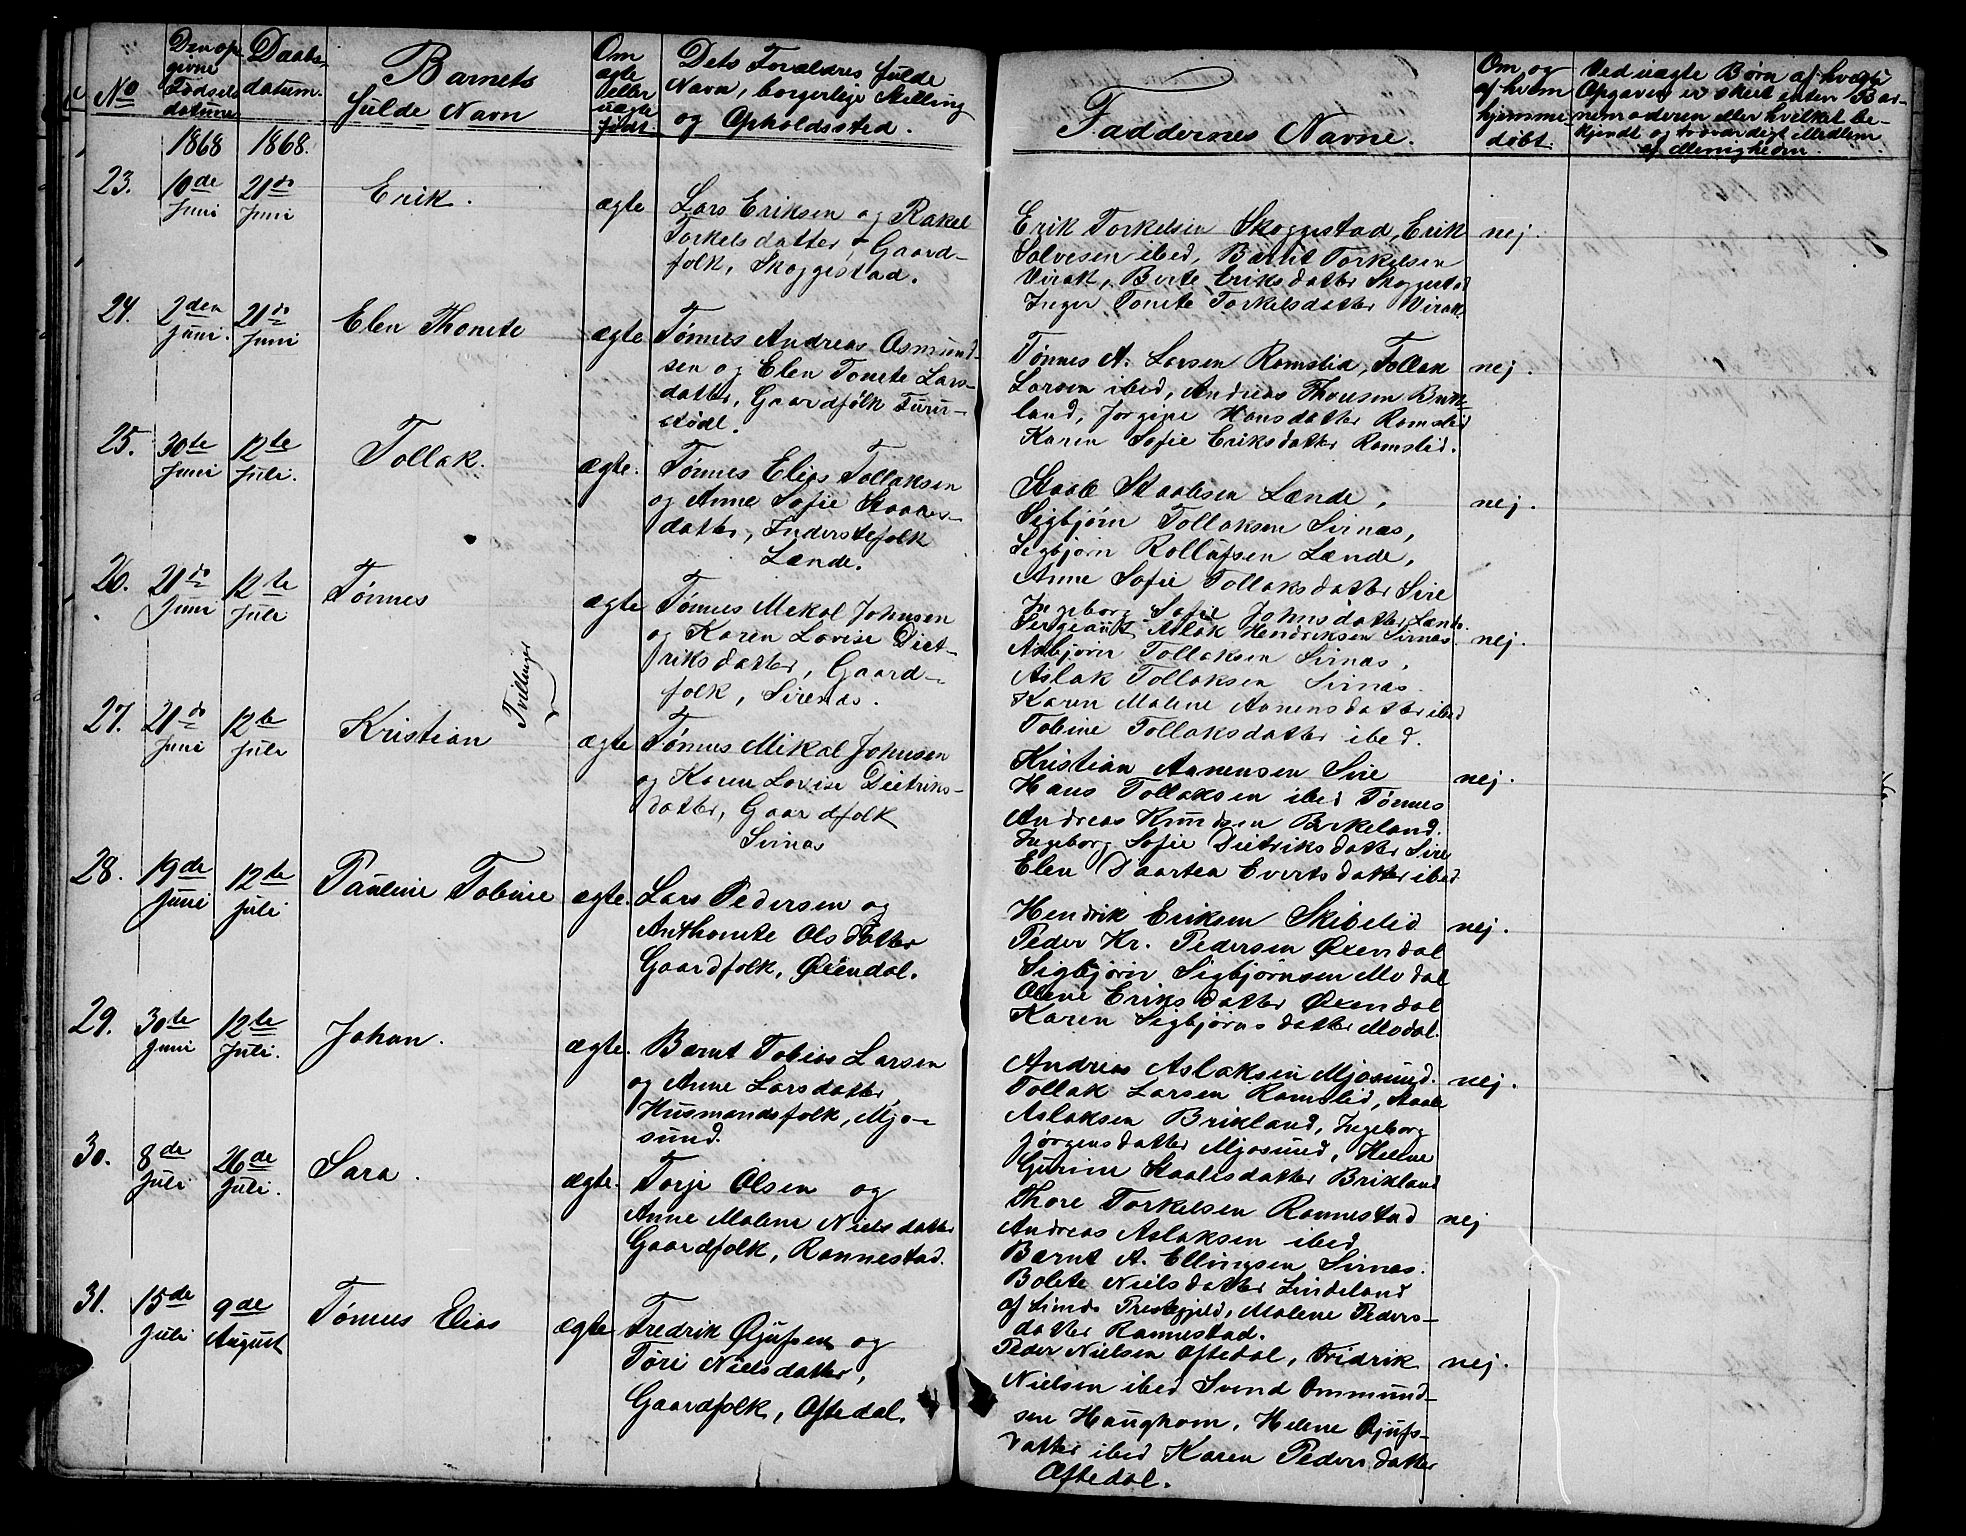 No
Den op-
givne
Fødsels
datum
Daabs-
datum.
Barnets
fulde Navn
Om
ægte
eller
uægte
født.
Dets Forældres fulde
Navn, borgerlige Stilling
og Opholdssted.
Faddernes Navne.
Om og
af hvem
hjemme-
døbt.
Ved uægte Børn af hvem
Opgaven er skeet enten Bar-
nemoderen eller hvilket be-
kjendt og troværdigt Medlem
af Menigheden.
1868 1868.
23.
10de
Juni
21do
Juni
Erik.
ægte
Lars Eriksen og Rakel
Torkelsdatter, Gaard-
folk, Skoggestad.
Erik Torkelsen Skoggestad, Erik
Salvesen ibed, Bernt Torkelsen
Virak, Berte Eriksdatter Skoggestad
Inger Tonete Torkelsdatter Virak.
nej.
24.
2den
Juni.
21do
Juni
Elen Thonete
ægte
Tønnes Andreas Osmund-
sen og Elen Tonete Lars-
datter, Gaardfolk Furu-
stødl.
Tønnes A. Larsen Ramslid, Tollak
Larsen ibed, Andreas Thorsen Birk-
land, Jørgine Hansdatter Ramslid
Karen Sofie Eriksdatter Ramslid.
nej.
25.
30te
Juni
12te
Juli.
Tollak.
ægte.
Tønnes Elias Tollaksen
og Anne Sofie Staales-
datter, Inderstefolk
Lænde.
Staale Staalesen Lænde,
Sigbjørn Tollaksen Sirnæs,
Sigbjørn Rollufsen Lænde,
Anne Sofie Tollaksdatter Sire
Ingeborg Sofie Johnsdatter Lænde
nej.
26.
21do
Juni
12te
Juli
Tønnes
Tvillinger
ægte
Tønnes Mikal Johnsen
og Karen Lovise Diet-
riksdatter, Gaard-
folk, Sirenæs.
Sergeant Aslak Hendriksen Sirnæs
Asbjørn Tollaksen Sirnæs,
Aslak Tollaksen Sirnæs.
Karen Malene Aanensdatter ibed
Tobine Tollaksdatter ibed.
nej.
27.
21do
Juni
12te
Juli
Kristian
ægte
Tønnes Mikal Johnsen
og Karen Lovise Dietriks-
datter, Gaardfolk
Sirnæs
Kristian Aanensen Sire
Hans Tollaksen ibed Tønnes
Andreas Knudsen Birkeland.
Ingeborg Sofie Dietriksdatter Sire
Elen Daartea Evertsdatter ibed
nej.
28.
19de
Juni
12te
Juli
Pauline Tobine
ægte.
Lars Pedersen og
Anthonete Olsdatter
Gaardfolk, Øxendal.
Hendrik Eriksen Skibelid
Peder Kr. Pedersen Øxendal
Sigbjørn Sigbjørnsen Modal
Olene Eriksdatter Øxendal
Karen Sigbjørnsdatter Modal.
nej.
29.
30te
Juni
12te
Juli.
Johan.
ægte.
Bernt Tobias Larsen
og Anne Larsdatter
Husmandsfolk, Mjo-
sund.
Andreas Aslaksen Mjosund.
Tollak Larsen Ramslid, Staale
Aslaksen Brikland, Ingeborg
Jørgensdatter Mjosund, Helene
Gurine Staalesdatter Brikland
nej.
30.
8de
Juli
26de
Juli.
Sara.
ægte.
Torje Olsen og
Anne Malene Nielsdatter
Gaardfolk, Rannestad.
Thore Torkelsen Rannestad
Andreas Aslaksen ibed
Bernt A. Ellingsen Sirnæs.
Bolete Nielsdatter Lindeland
af Lunds Prestegjeld, Malene Peders-
datter Rannestad.
nej
31.
15de
Juli
9de
August
Tønnes Elias
ægte
Fredrik Øjufsen og
Tøri Nielsdatter,
Gaardfolk, Oftedal.
Peder Nielsen Oftedal, Fridrik
Nielsen ibed Svend Ommund-
sen Haughom, Helene Øjufs-
datter ibed Karen Pedersdatter
Oftedal.
nej.